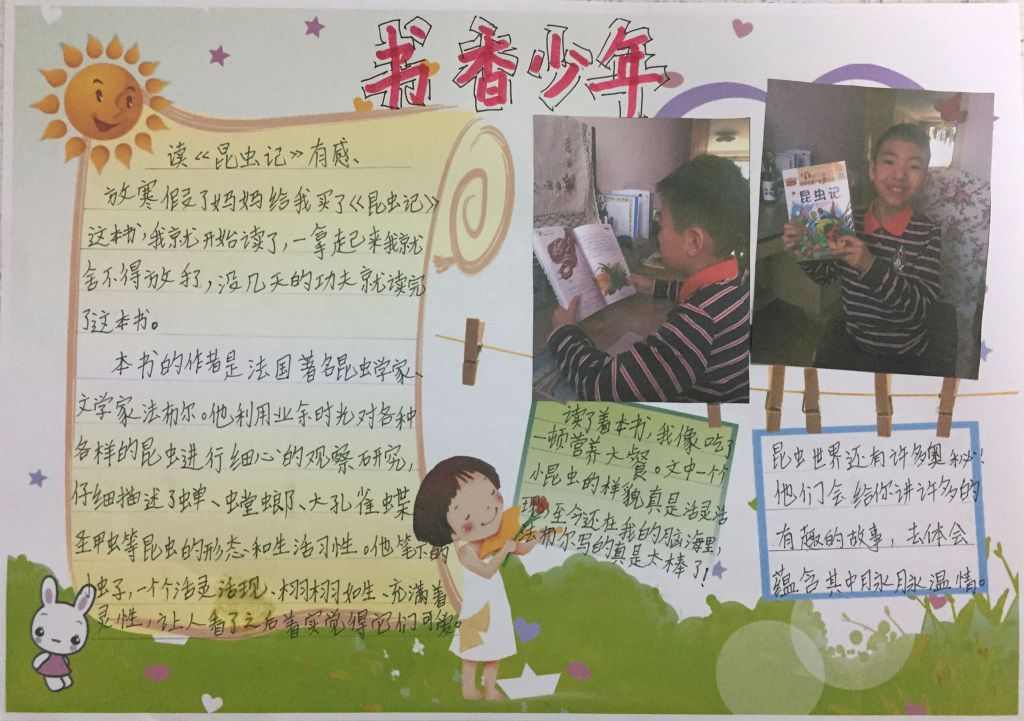 书香少年
读《昆虫记》有感、
放寒假了妈妈给我买了《昆虫记》
这本书,我就开始读了,一拿起来我就
舍不得放手了,没几天的功夫就读完
了这本书。
本书的作者是法国著名昆虫学家、
文学家法布尔。他利用业余时光对各种
各样的昆虫进行细心的观察研究,
仔细描述了蝉、螳螂、大孔雀蝶
甲虫等昆虫的形态和生活习性。他笔下的
虫子,一个个活灵活现、栩栩如生、充满着
灵性,让人看了之后着实觉得它们可爱。
昆虫记
读了着本书,我像吃了
一顿营养大餐。文中一个个
小昆虫的样貌真是活灵活
现,至今还在我的脑海里,
法布尔写的真是太棒了!
昆虫世界还有许多奥秘!
他们会给你讲许多的
有趣的故事,去体会
蕴含其中脉脉温情。